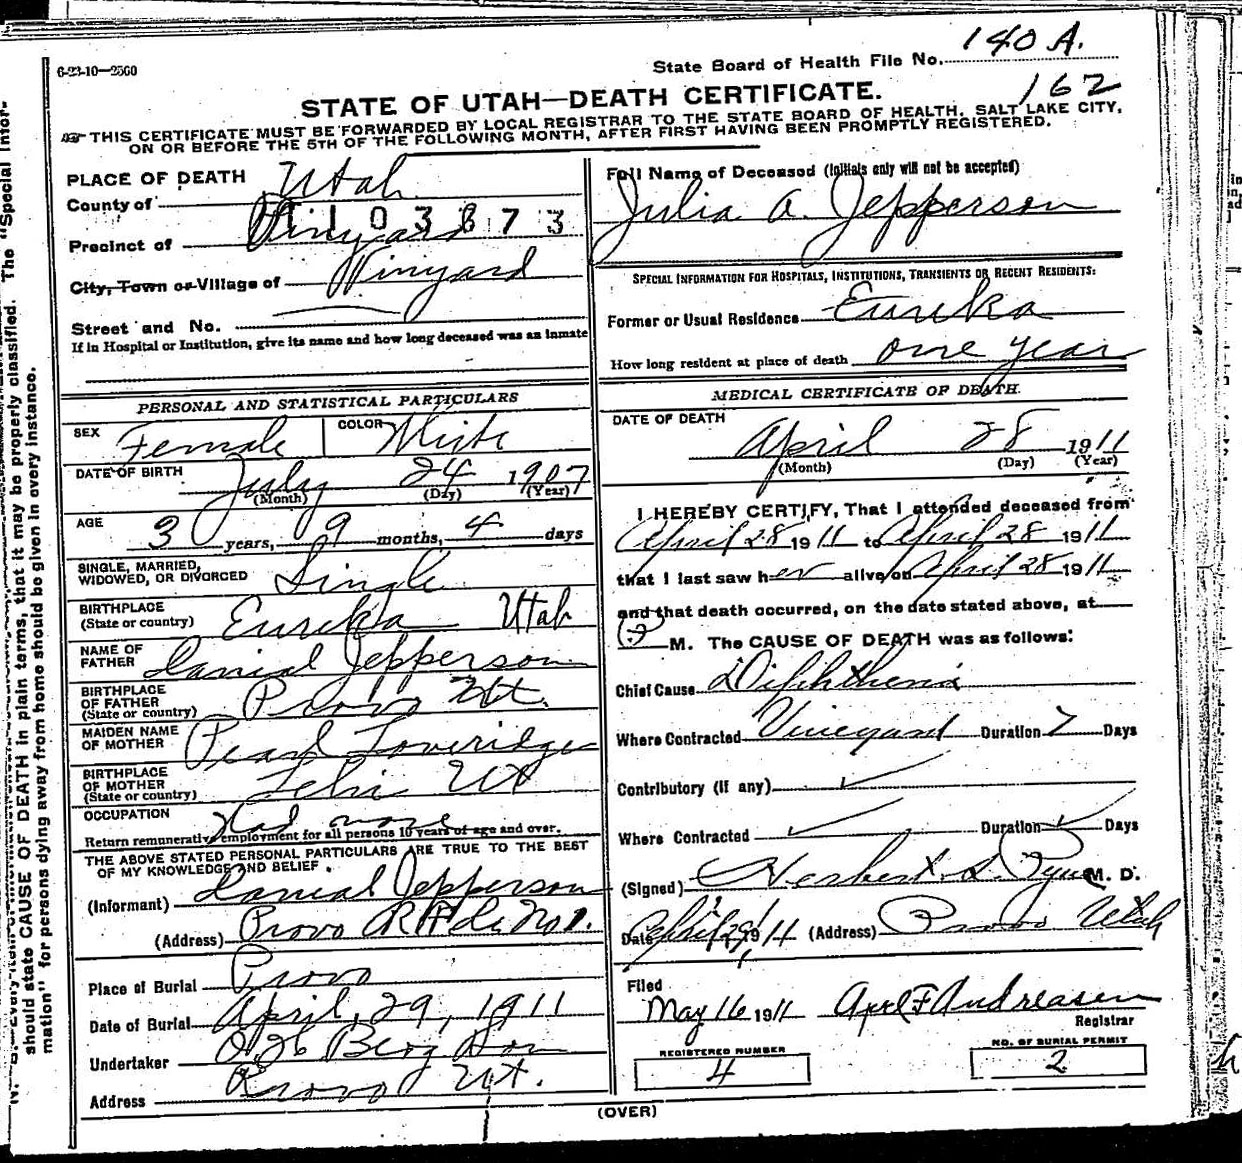 6-23-10—2560
State Board of Health File No. 140 A.
162
STATE OF UTAH—DEATH CERTIFICATE.
THIS CERTIFICATE MUST BE FORWARDED BY LOCAL REGISTRAR TO THE STATE BOARD OF HEALTH, SALT LAKE CITY,
ON OR BEFORE THE 5TH OF THE FOLLOWING MONTH, AFTER FIRST HAVING BEEN PROMPTLY REGISTERED.
PLACE OF DEATH
County of Utah
1103873
Precinct of Vinyard
City, Town or Village of Vinyard
Street and No.
If in Hospital or Institution, give its name and how long deceased was an inmate
PERSONAL AND STATISTICAL PARTICULARS
SEX Female COLOR White
DATE OF BIRTH July 24 1907
(Month) (Day) (Year)
AGE 3 years, 9 months, 4 days
SINGLE, MARRIED,
WIDOWED, OR DIVORCED Single
BIRTHPLACE
(State or country) Eureka Utah
NAME OF
FATHER Danial Jepperson
BIRTHPLACE
OF FATHER
(State or country) Provo Ut.
MAIDEN NAME
OF MOTHER Pearl Loveridge
BIRTHPLACE
OF MOTHER
(State or country) Lehi Ut
OCCUPATION Had none
Return remunerative employment for all persons 10 years of age and over.
THE ABOVE STATED PERSONAL PARTICULARS ARE TRUE TO THE BEST
OF MY KNOWLEDGE AND BELIEF.
(Informant) Danial Jepperson
(Address) Provo No 1.
Place of Burial Provo
Date of Burial April, 29, 1911
Undertaker Berg Son
Address Provo Ut.
Full Name of Deceased (Initials only will not be accepted)
Julia A. Jepperson
SPECIAL INFORMATION FOR HOSPITALS, INSTITUTIONS, TRANSIENTS OR RECENT RESIDENTS:
Former or Usual Residence Eureka
How long resident at place of death one year
MEDICAL CERTIFICATE OF DEATH.
DATE OF DEATH
April 28 1911
(Month) (Day) (Year)
I HEREBY CERTIFY, That I attended deceased from
April 28 1911 to April 28 1911
that I last saw her alive on April 28 1911
and that death occurred, on the date stated above, at
M. The CAUSE OF DEATH was as follows:
Chief Cause Diphtheria
Where Contracted Vineyard Duration 7 Days
Contributory (if any)
Where Contracted Duration Days
(Signed) Herbert S. Pyne M. D.
Date April 29 1911 (Address) Provo Utah
Filed
May 16 1911 Andreasen
Registrar
REGISTERED NUMBER
4
NO. OF BURIAL PERMIT
2
(OVER)
should state CAUSE OF DEATH in plain terms, that it may be properly classified. The "Special Infor-
mation" for persons dying away from home should be given in every instance.